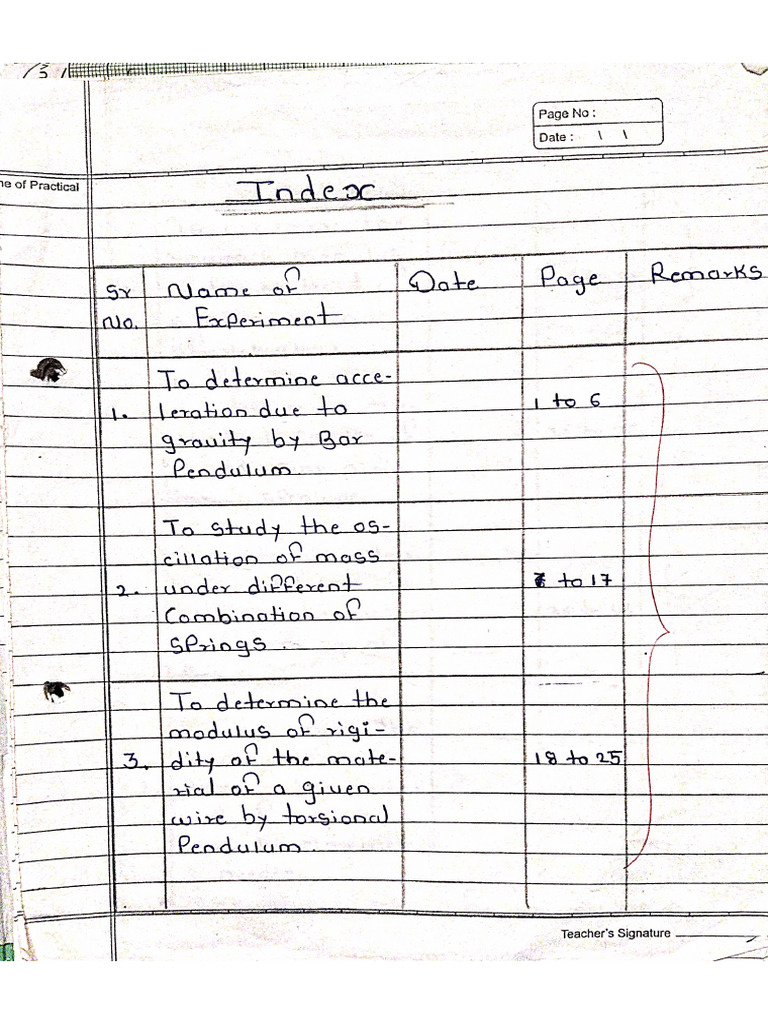 Page No :
Date :
ne of Practical
Index
Sr Name of Date Page Remarks
No. Experiment
To determine acce-
1. leration due to 1 to 6
gravity by Bar
Pendulum
To study the os-
cillation of mass
2. under different to 17
Combination of
Springs.
To determine the
modulus of rigi-
3. dity of the mate- 18 to 25
rial of a given
wire by torsional
Pendulum.
Teacher's Signature